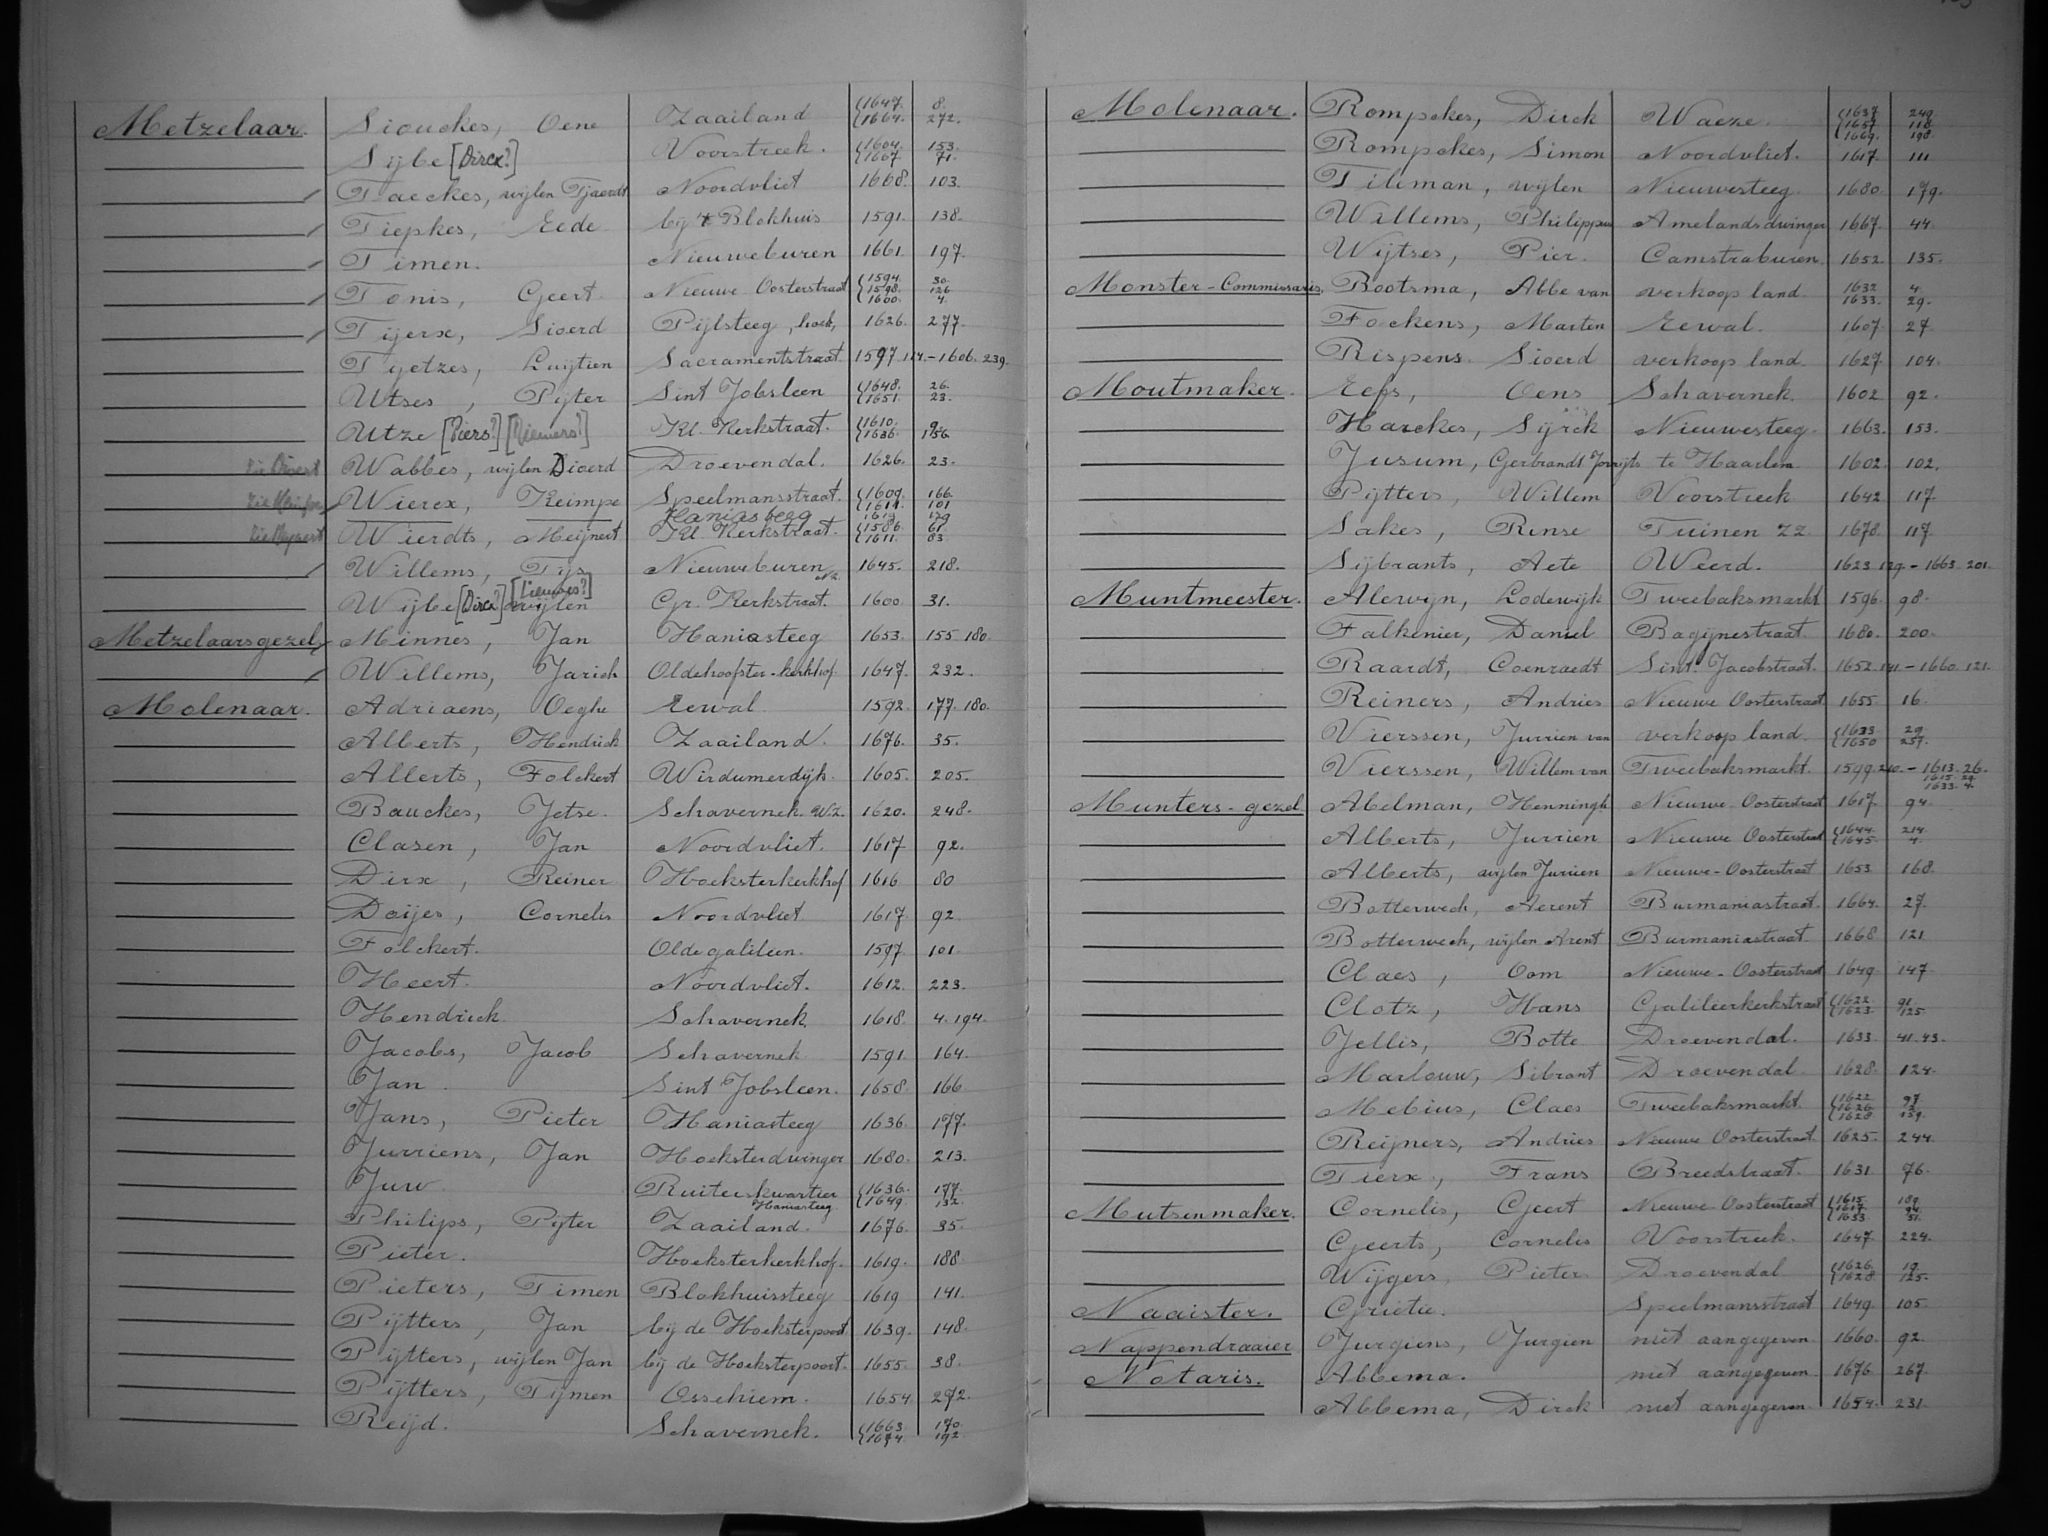 Metzelaar. Siouckes, Oene Zaailand 1647. 8. 1664. 272.
Sijbe [Dircx?] Voorstreek. 1604. 153. 1607 71.
Taeckes, wijlen Tjaerdt Noordvliet 1668. 103.
Tiepkes, Eede bij 't Blokhuis 1591. 138.
Timen. Nieuweburen 1661. 197.
Tonis, Geert. Nieuwe Oosterstraat 1594. 30. 1598. 126 1600. 4.
Tijerx, Sioerd Pijlsteeg, hoek, 1626. 277.
Tyetzes, Luijtien Sacramentstraat 1597. 114. - 1606. 239.
Utses, Pijter Sint Jobsleen 1648. 26. 1651. 23.
Utze [Piers?] [Riemers?] Kl. Kerkstraat. 1610. 9. 1636. 156
Wabbes, wijlen Dioerd Droevendal. 1626. 23.
Wierex, Keimpe Speelmansstraat. 1609. 166. 1611. 101
Haniasteeg 1619 129
Wierdts, Meijnert Kl. Kerkstraat. 1586. 61 1611. 83.
Willems, Tijs Nieuweburen NZ. 1645. 218.
Wijbe [Dircx?] [Tiemens?] wijlen Gr. Kerkstraat. 1600 31.
Metzelaarsgezel Minnes, Jan Haniasteeg 1653. 155. 180.
Willems, Jarich Oldehoofster-kerkhof 1647. 232.
Molenaar. Adriaens, Oeghe Eewal 1592. 177. 180.
Alberts, Hendrick Zaailand. 1676. 35.
Allerts, Folckert Wirdumerdijk. 1605. 205.
Bauckes, Jetse. Schavernek. W.Z. 1620. 248.
Clasen, Jan Noordvliet. 1617 92.
Dirx, Reiner Hoeksterkerkhof 1616 80
Doijes, Cornelis Noordvliet 1617. 92.
Folckert. Oldegalileen. 1597 101.
Heert. Noordvliet. 1612. 223.
Hendrick. Schavernek 1618. 4. 194.
Jacobs, Jacob Schavernek 1591. 164.
Jan. Sint Jobsleen. 1658. 166
Jans, Pieter Haniasteeg 1636. 177.
Jurriens, Jan Hoeksterdwinger 1680. 213.
Juw Ruiterskwartier 1636. 177. Haniasteeg 1649. 132.
Philips, Pijter Zaailand. 1676. 35.
Pieter. Hoeksterkerkhof. 1619. 188.
Pieters, Timen Blokhuissteeg 1619 141.
Pijtters, Jan bij de Hoeksterpoort 1639. 148.
Pijtters, wijlen Jan bij de Hoeksterpoort. 1655. 38.
Pijtters, Tijmen Ossekiem. 1654. 272.
Reijd. Schavernek. 1663. 170. 1674. 192.
Molenaar. Rompckes, Dirck Waeze. 1637 249. 1657. 118. 1669. 198.
Rompckes, Simon Noordvliet. 1617. 111
Tileman, wijlen Nieuwesteeg. 1680. 179.
Willems, Philippus Amelandsdwinger 1667. 44.
Wijtses, Pier. Camstraburen. 1652. 135.
Monster-Commissaris. Bootsma, Abbe van verkoop land. 1632 4. 1633. 29.
Fockens, Marten Eewal. 1607. 27
Rispens. Sioerd verkoop land. 1627. 104.
Moutmaker. Eefs, Oens Schavernek. 1602 92.
Harckes, Sijrck Nieuwesteeg. 1663. 153.
Jusum, Gerbrandt Jorrijts te Haarlem. 1602. 102.
Pijtters, Willem Voorstreek 1642 117.
Sakes, Rinse Tuinen ZZ. 1678. 117.
Sijbrants, Aete Weerd. 1623. 129. - 1663. 201.
Muntmeester. Alewijn, Lodewijk Tweebaksmarkt 1596. 98.
Falkenier, Daniel Bagijnestraat. 1680. 200.
Raardt, Coenraedt Sint. Jacobstraat. 1652. 141. - 1660. 121.
Reiners, Andries Nieuwe Oosterstraat 1655 16.
Vierssen, Jurrien van verkoop land. 1633. 29. 1650 257.
Vierssen, Willem van Tweebaksmarkt. 1599. 210. - 1613. 26. 1615. 29. 1633. 4.
Munters-gezel Abelman, Henningh Nieuwe Oosterstraat 1617. 94.
Alberts, Jurrien Nieuwe Oosterstraat 1644. 214. 1645. 4.
Alberts, wijlen Jurrien Nieuwe-Oosterstraat 1653 168.
Botterweck, Aerent Burmaniastraat. 1664. 27.
Botterweck, wijlen Arent Burmaniastraat. 1668. 121
Claes, Oom Nieuwe-Oosterstraat 1649. 147
Clotz, Hans Galileerkerkstraat 1622. 91. 1623. 125.
Jellis, Botte Droevendal. 1633. 41. 43.
Marlouw, Sibrant Droevendal 1628. 124.
Mebius, Claes Tweebaksmarkt. 1622. 97. 1626. 2. 1628 139.
Reijners, Andries Nieuwe Oosterstraat. 1625. 244.
Tierx, Frans Breedstraat. 1631. 76.
Mutsenmaker. Cornelis, Geert Nieuwe Oosterstraat 1615. 189. 1617. 94. 1633. 51.
Geerts, Cornelis Voorstreek. 1647. 224.
Wijgers Pieter Droevendal 1626. 19. 1628 125.
Naaister. Grietie. Speelmansstraat 1649. 105.
Nappendraaier Jurgiens, Jurgien niet aangegeven. 1660. 92.
Notaris. Abbema. niet aangegeven. 1676 267.
Abbema, Dirck niet aangegeven. 1654. 231.